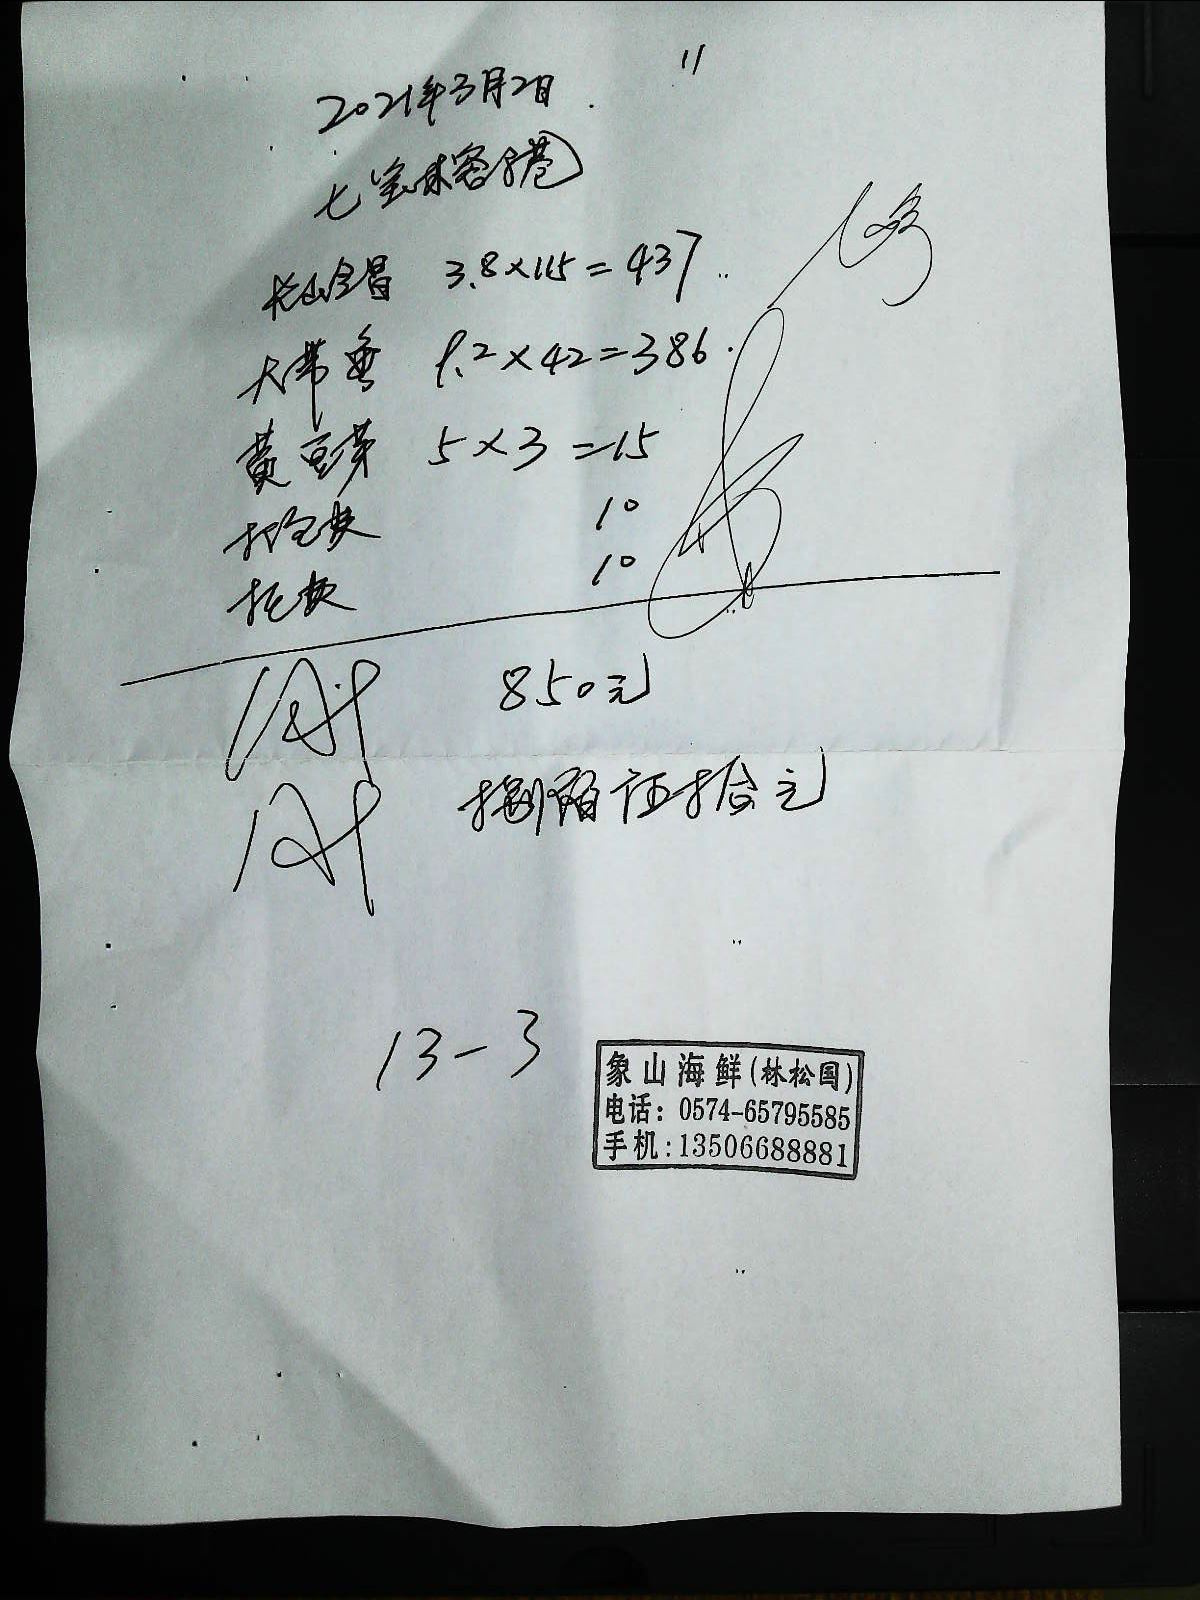 11
2021年3月2日
七宝来客港
3.8×115=437
大带鱼 9.2×42=386
黄豆芽 5×3=15
10
10
850元
捌陌伍拾元
13-3
象山海鲜(林松国)
电话:0574-65795585
手机:13506688881